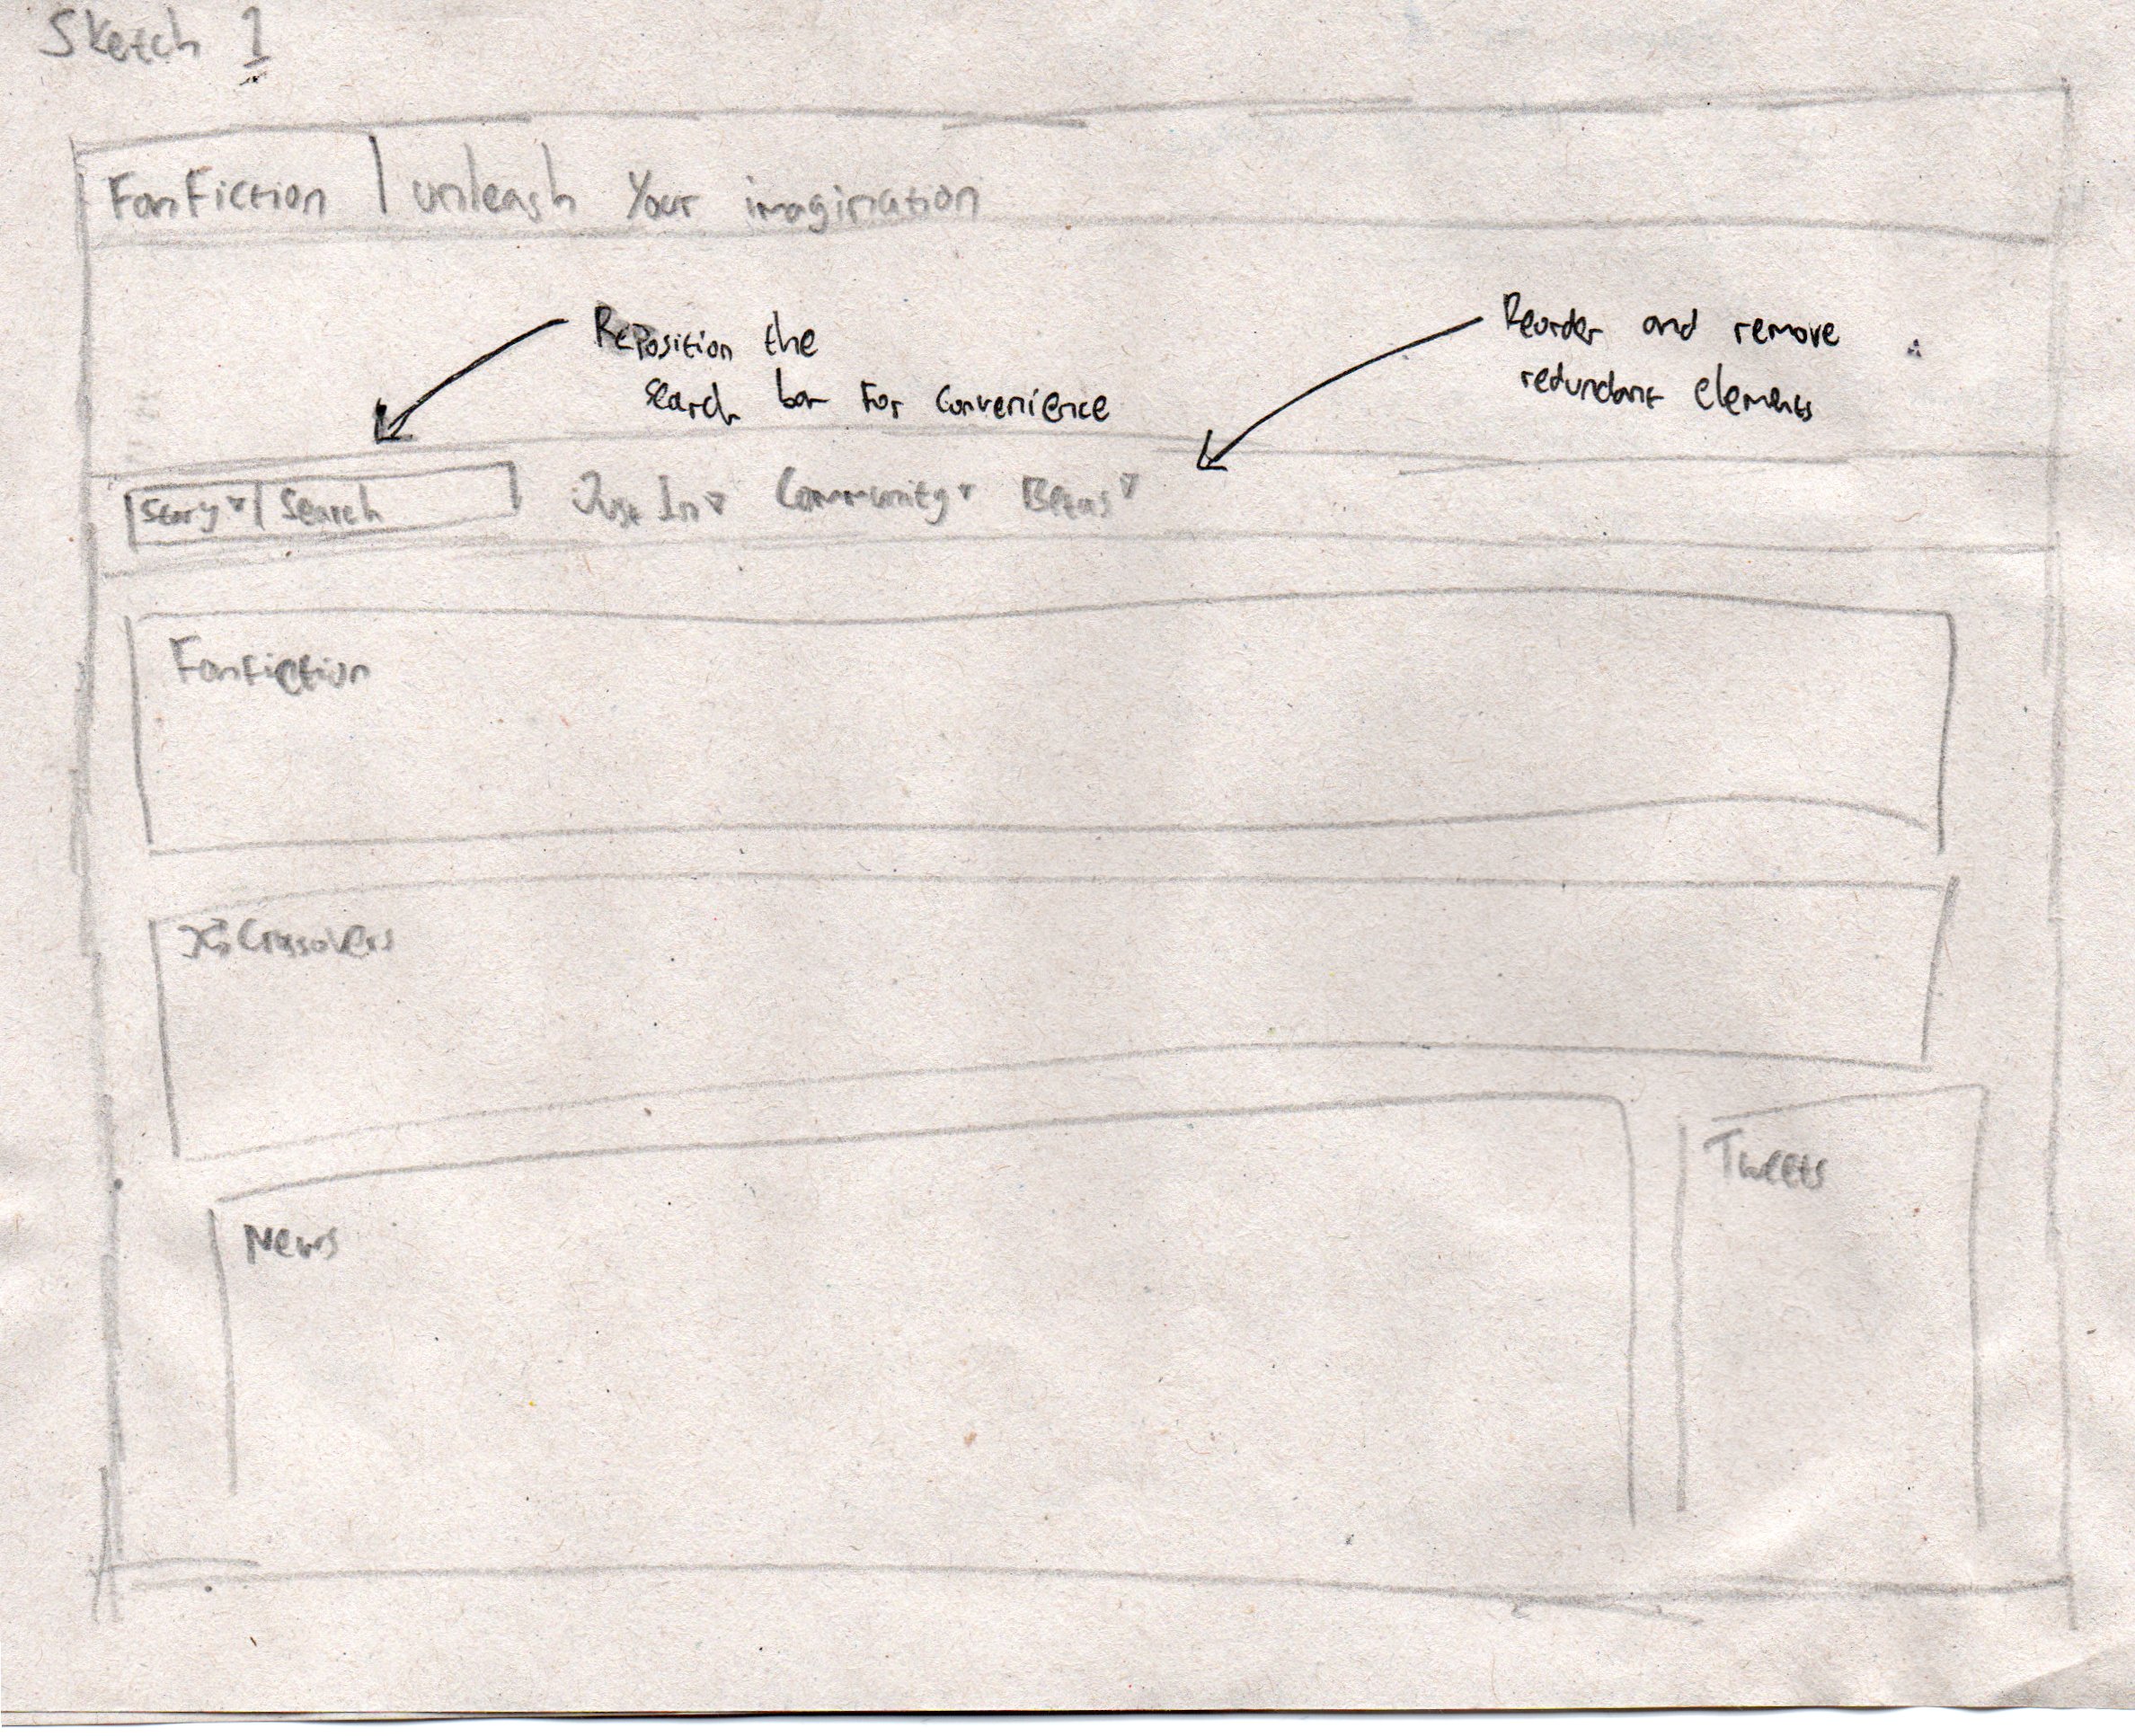 Sketch 1
FanFiction | unleash your imagination
Reposition the
search bar for convenience
Reorder and remove
redundant elements
Story ▾ | Search Just In ▾ Community ▾ Betas ▾
Fanfiction
Crossovers
News
Tweets